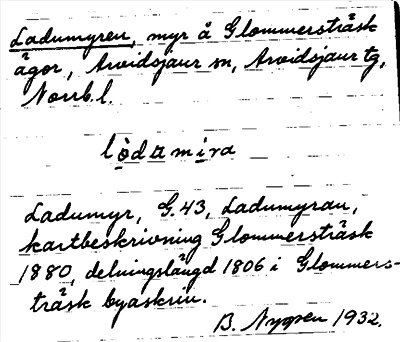 Ladumyren, myr å Glommersträsk
ägor, Arvidsjaur sn, Arvidsjaur tg,
Norrb.l.
lòdamira
Ladumyr, G.43, Ladumyran,
kartbeskrivning Glommersträsk
1880, delningslängd 1806 i Glommers-
träsk byaskrin.
B. Nygren 1932.